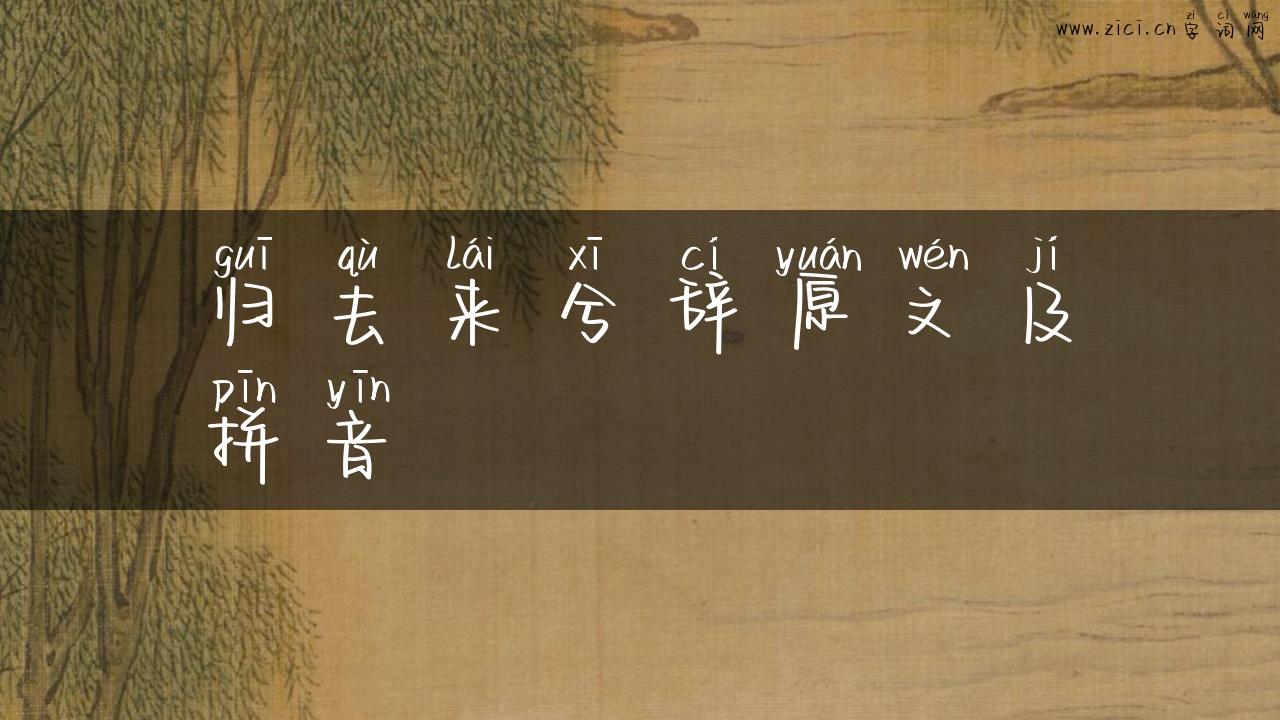 zì cí wǎng
www.zici.cn 字词网
guī qù lái xī cí yuán wén jí
归去来兮辞原文及
pīn yīn
拼音